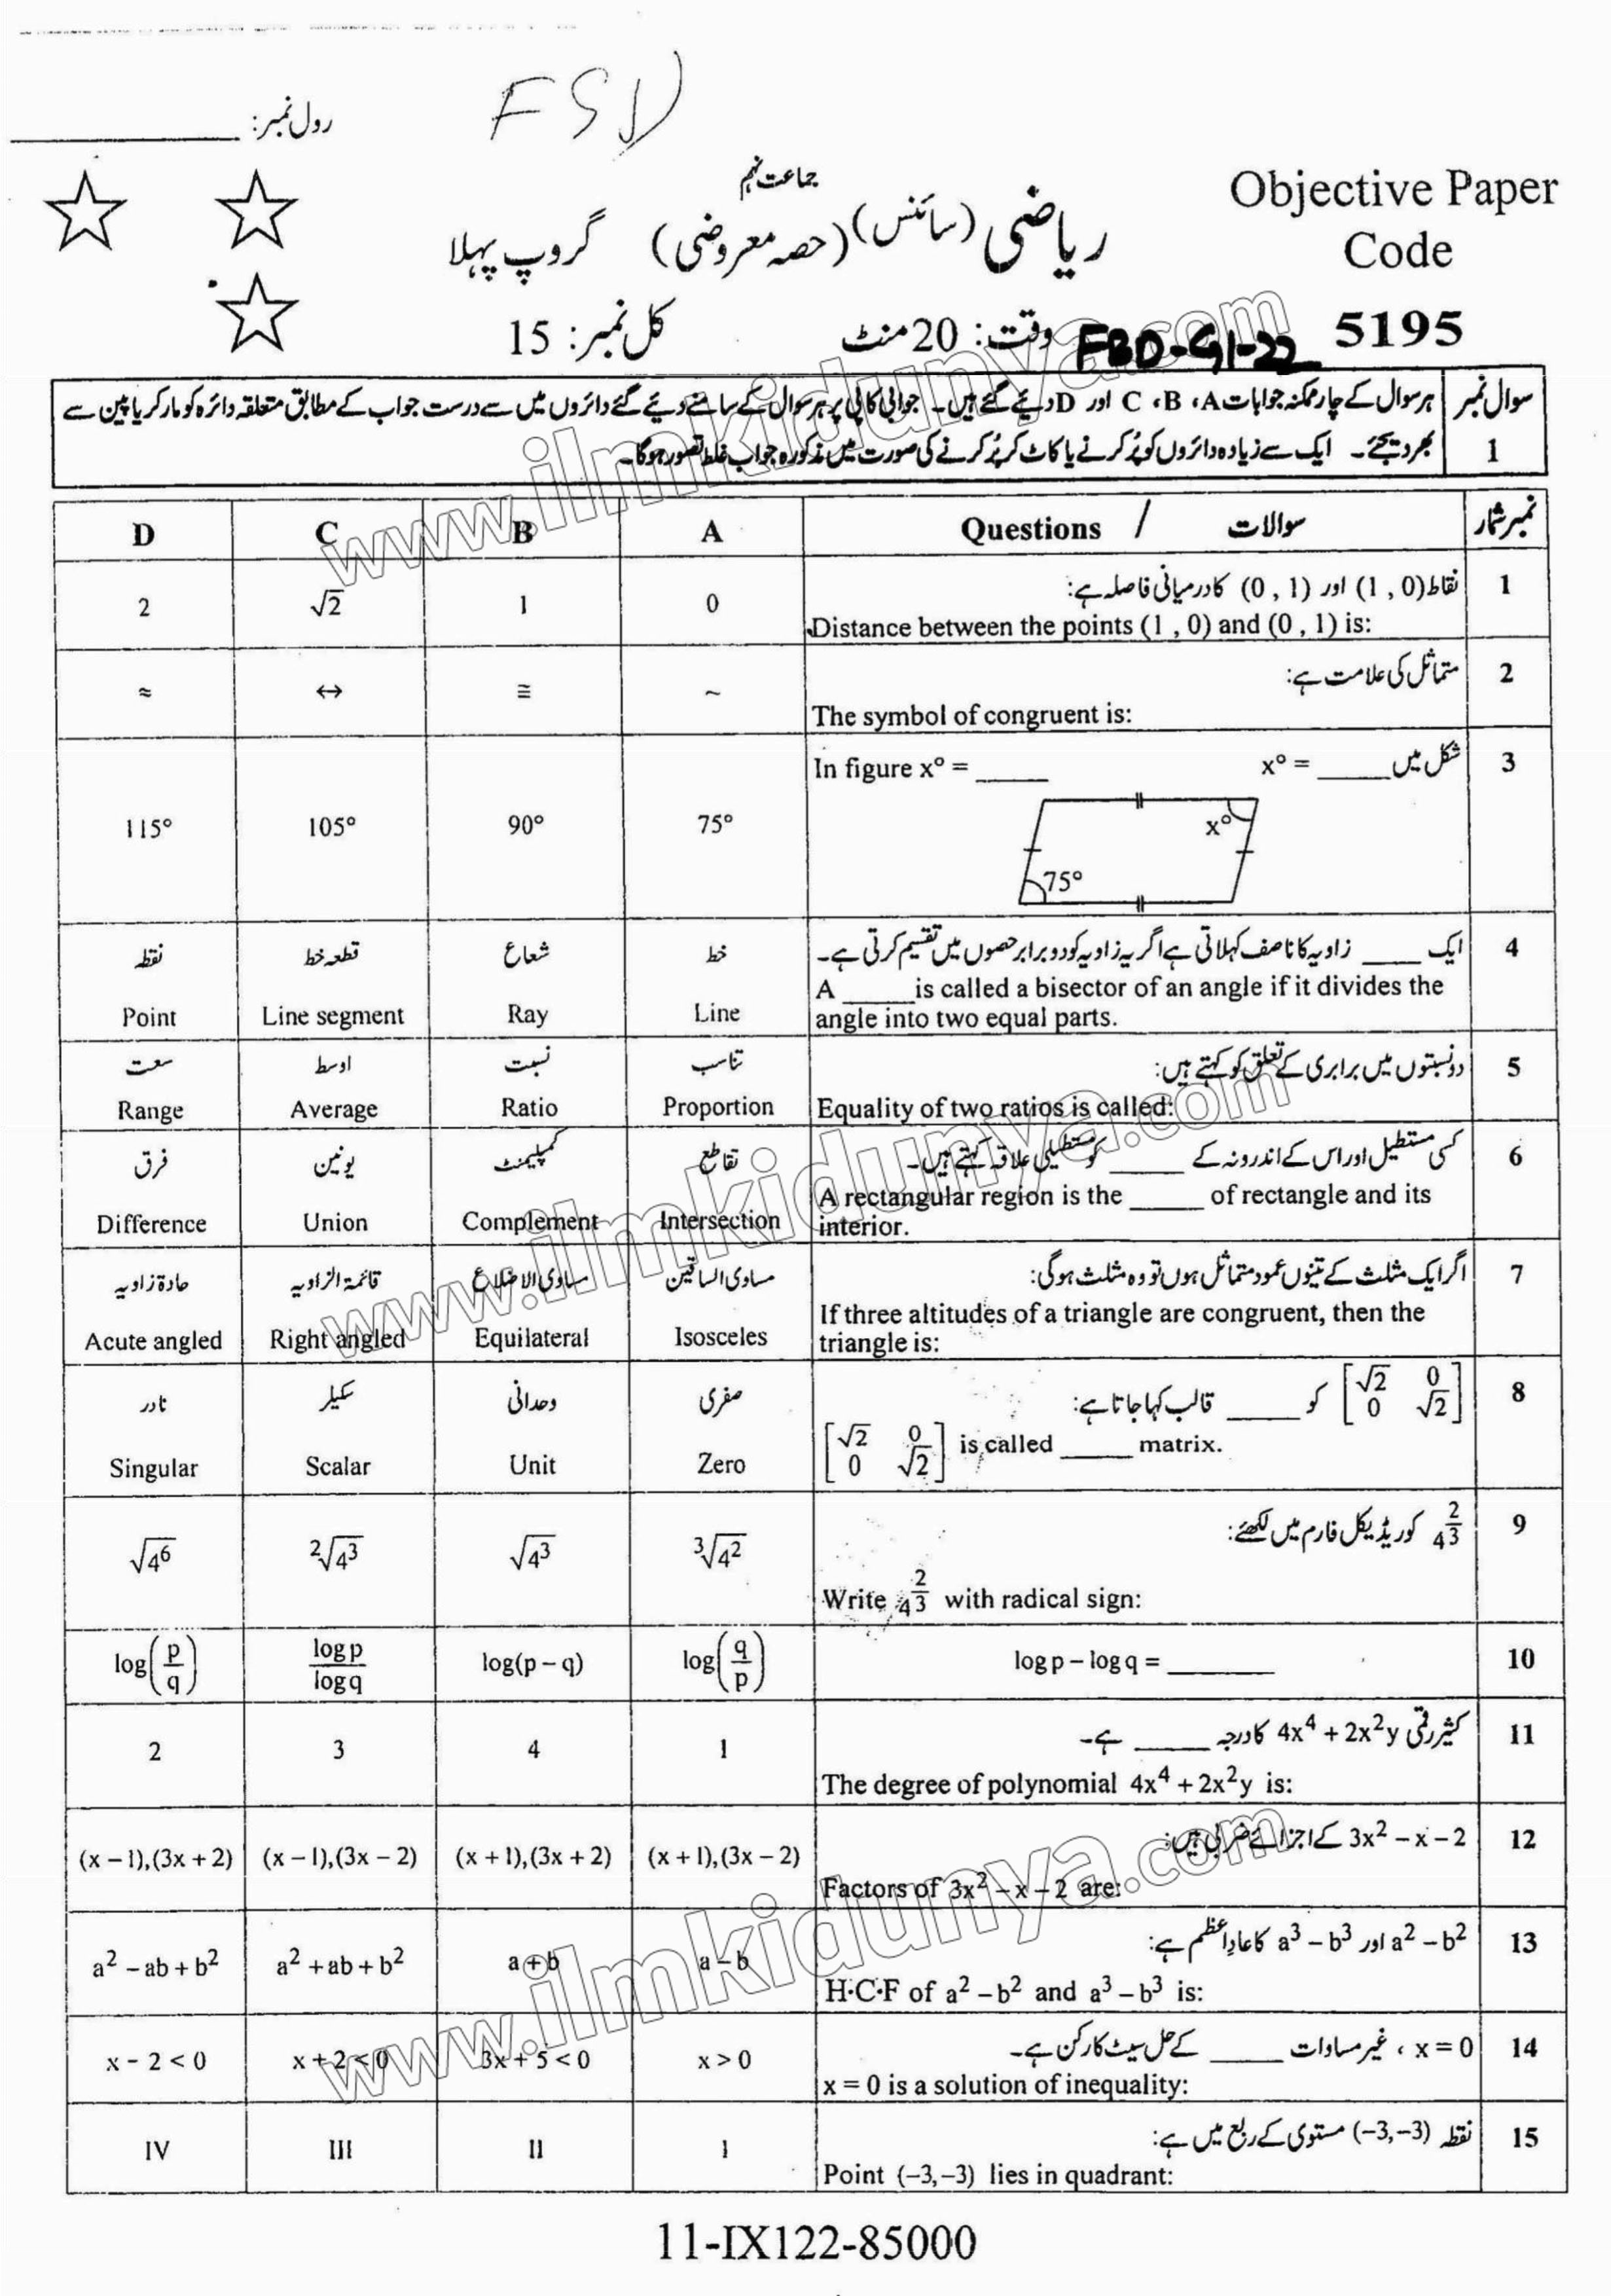 FSD
رول نمبر:
جماعت نہم
Objective Paper
Code
5195
ریاضی (سائنس) (حصہ معروضی) گروپ پہلا
وقت: 20 منٹ کل نمبر: 15
FBD-G1-22
سوال نمبر 1
ہر سوال کے چار ممکنہ جوابات A، B، C اور D دیئے گئے ہیں۔ جوابی کاپی پر ہر سوال کے سامنے دیئے گئے دائروں میں سے درست جواب کے مطابق متعلقہ دائرہ کو مارکر یا پین سے
بھر دیجئے۔ ایک سے زیادہ دائروں کو پُر کرنے یا کاٹ کر پُر کرنے کی صورت میں مذکورہ جواب غلط تصور ہوگا۔
D C B A Questions / سوالات نمبر شمار
1 نقاط (1 , 0) اور (0 , 1) کا درمیانی فاصلہ ہے:
Distance between the points (1 , 0) and (0 , 1) is:
2 √2 1 0
2 متماثل کی علامت ہے:
The symbol of congruent is:
≈ ↔ ≅ ~
3 شکل میں x° = _____
In figure x° = _____
x°
75°
115° 105° 90° 75°
4 ایک ____ زاویہ کا ناصف کہلاتی ہے اگر یہ زاویہ کو دو برابر حصوں میں تقسیم کرتی ہے۔
A _____ is called a bisector of an angle if it divides the
angle into two equal parts.
نقطہ قطعہ خط شعاع خط
Point Line segment Ray Line
5 دو نسبتوں میں برابری کے تعلق کو کہتے ہیں:
Equality of two ratios is called:
سعت اوسط نسبت تناسب
Range Average Ratio Proportion
6 کسی مستطیل اور اس کے اندرونہ کے _____ کو مستطیلی علاقہ کہتے ہیں۔
A rectangular region is the _____ of rectangle and its
interior.
فرق یونین کمپلیمنٹ تقاطع
Difference Union Complement Intersection
7 اگر ایک مثلث کے تینوں عمود متماثل ہوں تو وہ مثلث ہوگی:
If three altitudes of a triangle are congruent, then the
triangle is:
حادۃ زاویہ قائمۃ الزاویہ مساوی الاضلاع مساوی الساقین
Acute angled Right angled Equilateral Isosceles
8 [√2 0; 0 √2] کو _____ قالب کہا جاتا ہے:
[√2 0; 0 √2] is called _____ matrix.
نادر سکیلر وحدانی صفری
Singular Scalar Unit Zero
9 4^(2/3) کو ریڈیکل فارم میں لکھئے:
Write 4^(2/3) with radical sign:
√4⁶ ²√4³ √4³ ³√4²
10 log p – log q = _______
log(p/q) log p/log q log(p – q) log(q/p)
11 کثیر رقمی 4x⁴ + 2x²y کا درجہ _____ ہے۔
The degree of polynomial 4x⁴ + 2x²y is:
2 3 4 1
12 3x² – x – 2 کے اجزائے ضربی ہیں:
Factors of 3x² – x – 2 are:
(x – 1),(3x + 2) (x – 1),(3x – 2) (x + 1),(3x + 2) (x + 1),(3x – 2)
13 a² – b² اور a³ – b³ کا عاد اعظم ہے:
H·C·F of a² – b² and a³ – b³ is:
a² – ab + b² a² + ab + b² a + b a – b
14 x = 0 ، غیر مساوات _____ کے حل سیٹ کا رکن ہے۔
x = 0 is a solution of inequality:
x - 2 < 0 x + 2 < 0 3x + 5 < 0 x > 0
15 نقطہ (–3,–3) مستوی کے ربع میں ہے:
Point (–3,–3) lies in quadrant:
IV III II I
11-IX122-85000
www.ilmkidunya.com
www.ilmkidunya.com
www.ilmkidunya.com